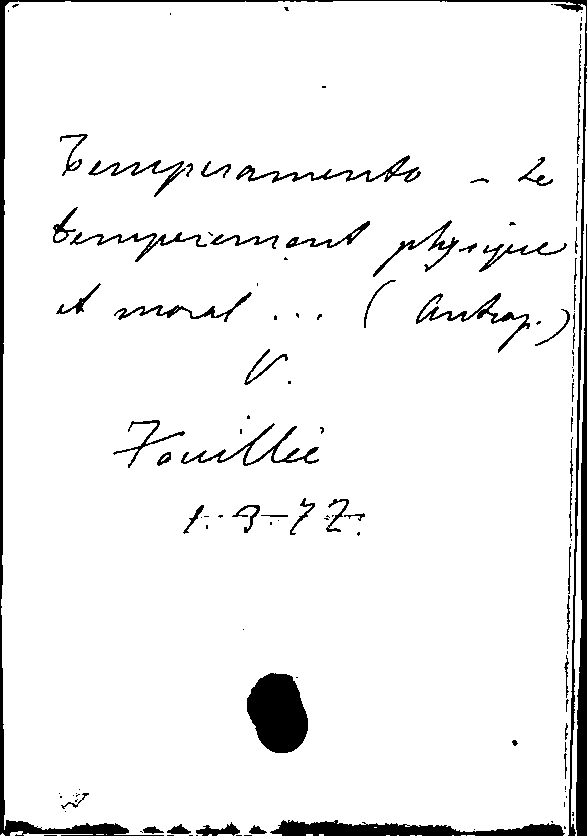 Temperamento - Le
temperement physique
et moral ... (Antrop.)
V.
Fouillée
1-3-72.